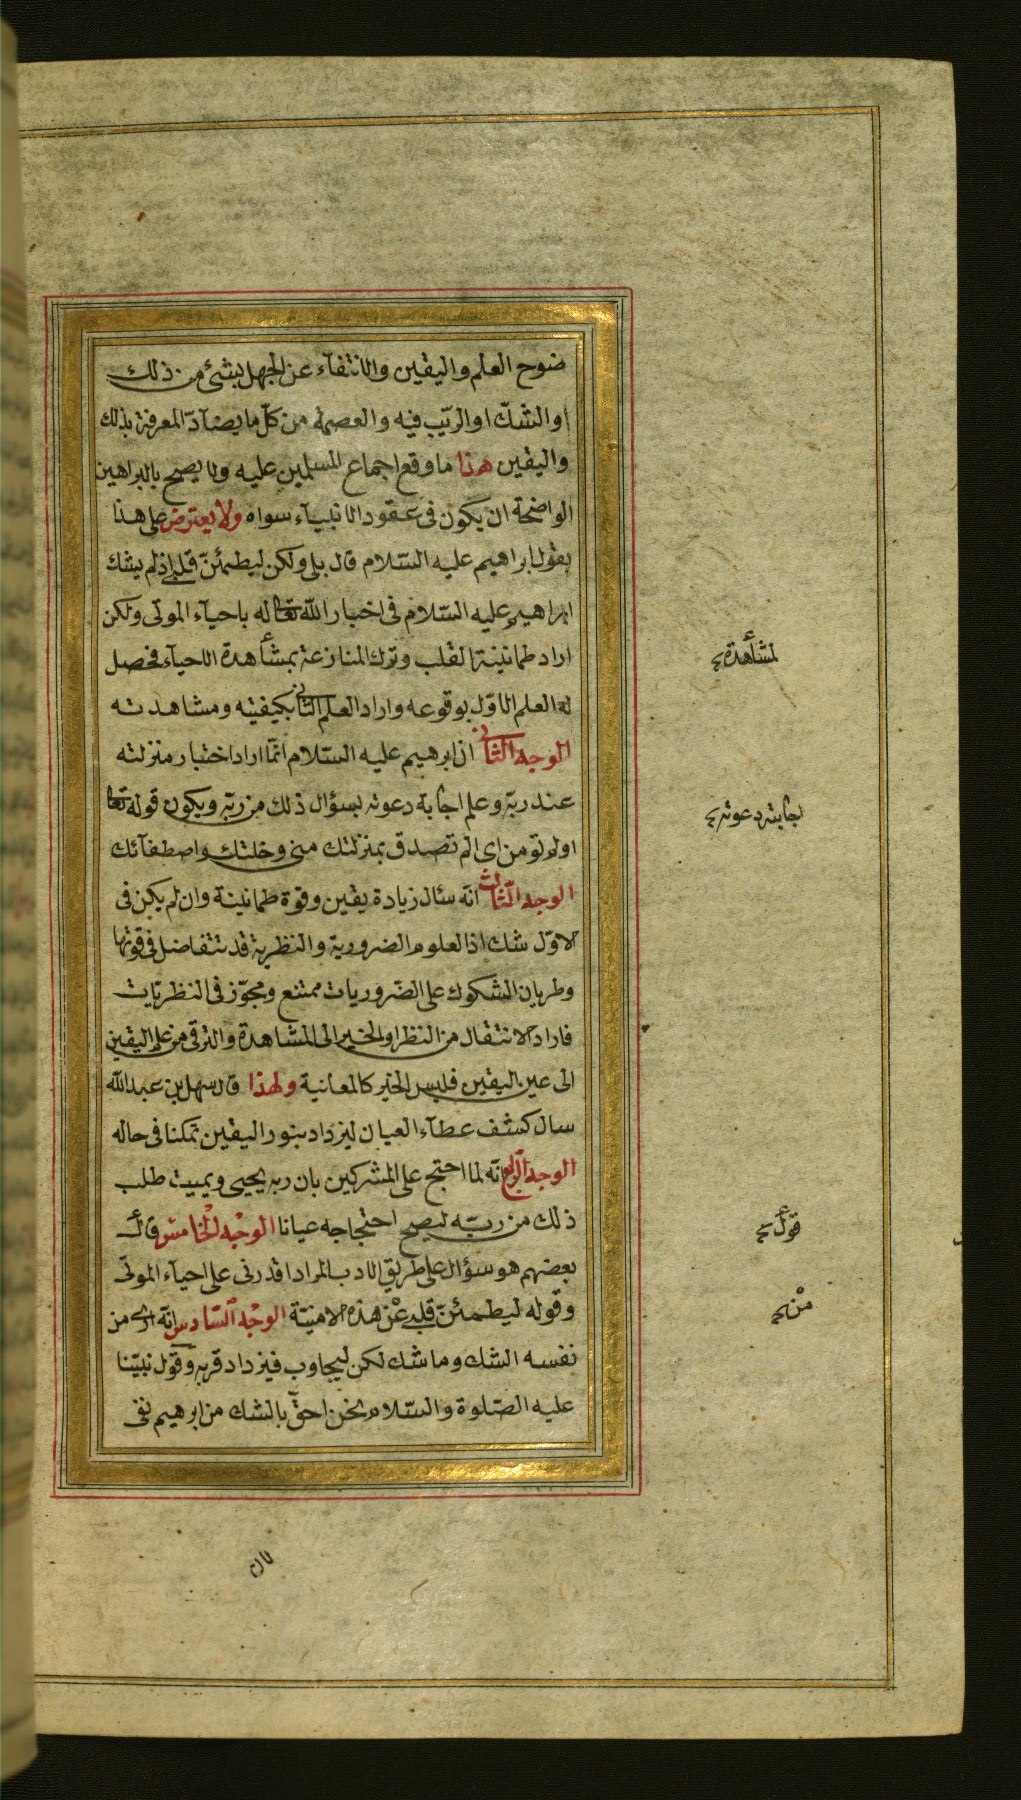 ضوح العلم واليقين والانتفآء عن الجهل بشئ من ذلك
او الشكّ او الرّيب فيه والعصمة من كلّ ما يضآدّ المعرفة بذلك
واليقين هذا ما وقع اجماع المسلمين عليه ولا يصح بالبراهين
الواضحة ان يكون فى عقود الانبيآء سواه ولا يعترض على هذا
بقول ابراهيم عليه السّلام قال بلى ولكن ليطمئنّ قلبى اذ لم يشك
ابراهيم عليه السّلام فى اخبار الله تعالى له باحيآء الموتى ولكن
اراد طمانينة القلب وترك المنازعة بمشاهدة الاحيآء فحصل
له العلم الاوّل بوقوعه واراد العلم الثانى بكيفيته ومشاهدته
الوجه الثانى ان ابرهيم عليه السّلام انّما اراد اختبار منزلته
عند ربّه وعلم اجابة دعوته بسؤال ذلك من ربّه ويكون قوله تعالى
اولم تومن اى الم تصدق بمنزلتك منى وخلتك واصطفآئك
الوجه الثّالث انّه سئال زيادة يقين وقوة طمانينة وان لم يكن فى
الاوّل شك اذ العلوم الضرورية والنظرية قد تتفاضل فى قوتها
وطريان الشكوك على الضّروريات ممتنع ومجوّز فى النظريّات
فاراد الانتقال من النظر او الخبر الى المشاهدة والترقى من علم اليقين
الى عين اليقين فليس الخبر كالمعانية ولهذا قال سهل بن عبد الله
سال كشف عطآء العيان ليزداد بنور اليقين تمكنا فى حاله
الوجه الرّابع انّه لما احتج على المشركين بان ربه يحيى ويميت طلب
ذلك من ربّه ليصح احتجاجه عيانا الوجْه الْخامس قال
بعضهم هو سؤال على طريق الادب المراد اقدرنى على احيآء الموتى
وقوله ليطمئنّ قلبى عنْ هذه الامنيّة الوجْه السّادس انّه ارى من
نفسه الشك وما شك لكن ليجاوب فيزداد قربه وقول نبيّنا
عليه الصّلوة والسّلام نحن احقّ بالشك من ابرهيم نفى
لمشاهدة
اجابته دعوته
قول
منْ
لان